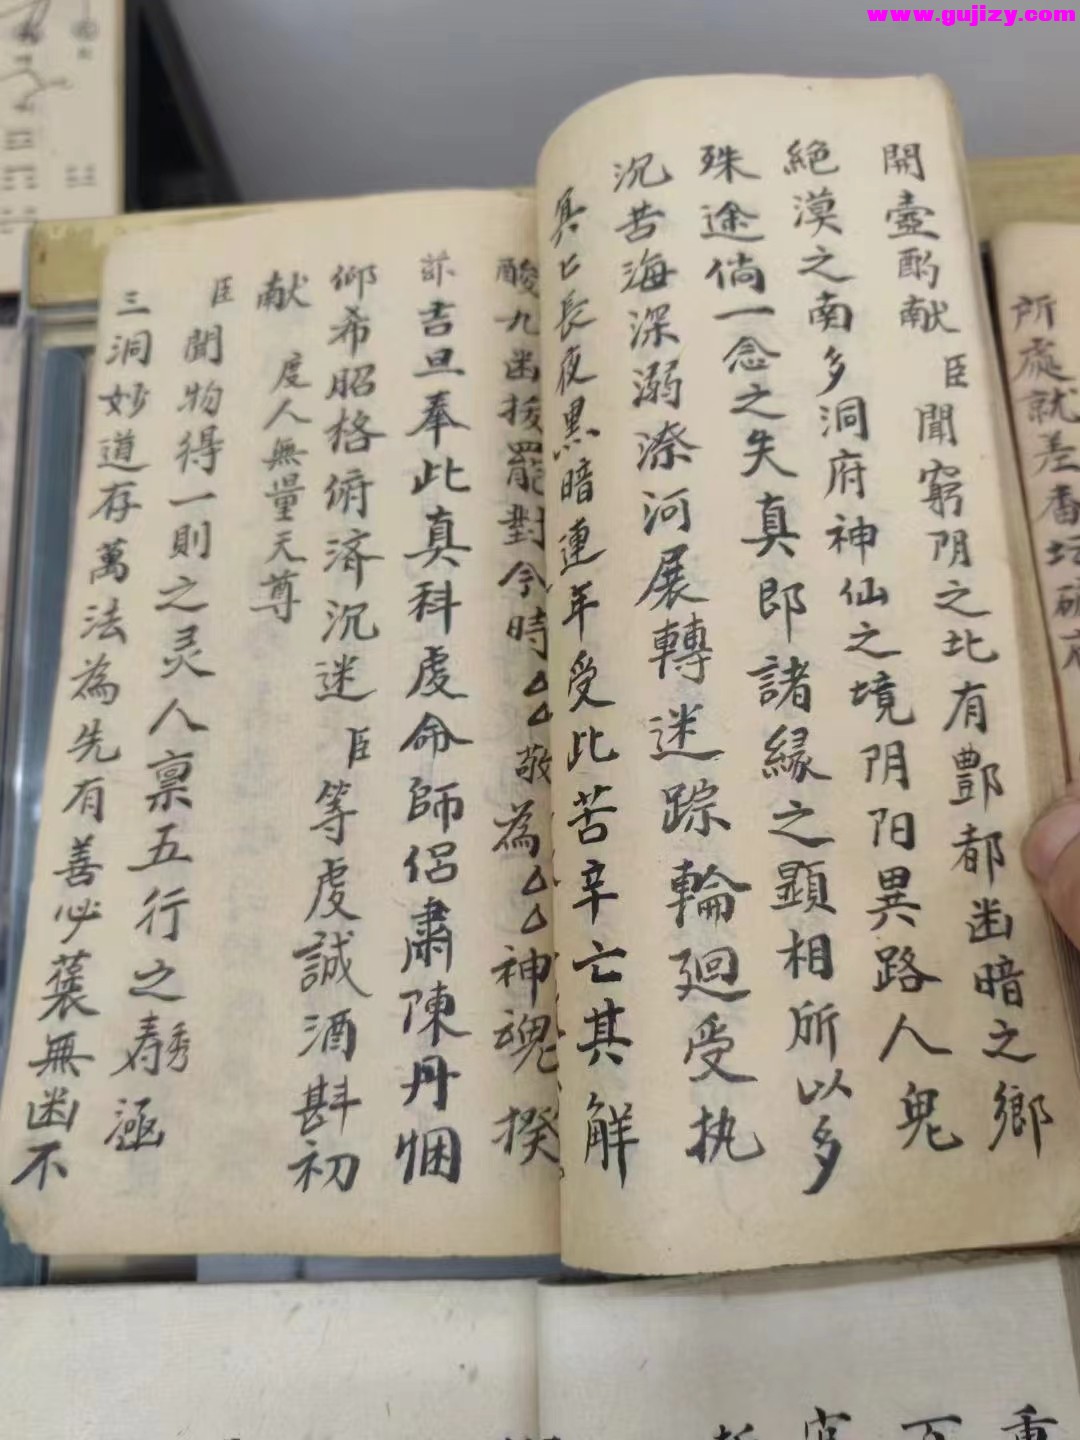 www.gujizy.com
所處就差香
開壺酌献 臣聞窮阴之北有酆都幽暗之鄉
絶漠之南多洞府神仙之境阴阳異路人鬼
殊途倘一念之失真即諸緣之顯相所以多
沉苦海深溺漈河展轉迷踪輪廻受执
冥匕長夜黑暗連年受此苦辛亡其解
酸九幽拔罷對今時△△敬為△△神魂揆
吉旦奉此真科虔命師侶肅陳丹悃
仰希昭格俯済沉迷 臣等虔誠酒斟初
献 度人無量天尊
臣聞物得一則之灵人禀五行之秀涵
三洞妙道存萬法為先有善必蓑無幽不